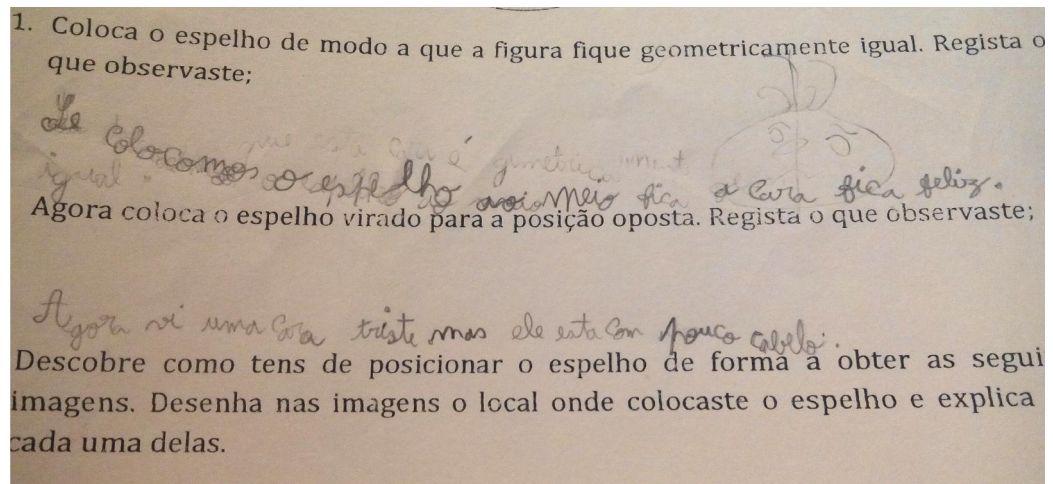 1. Coloca o espelho de modo a que a figura fique geometricamente igual. Regista o
que observaste;
Se colocomos o espelho meio fica a cara fica feliz.
igual.
Agora coloca o espelho virado para a posição oposta. Regista o que observaste;
Agora vi uma cara triste mas ele esta com pouco cabelo.
Descobre como tens de posicionar o espelho de forma a obter as segui
imagens. Desenha nas imagens o local onde colocaste o espelho e explica
cada uma delas.